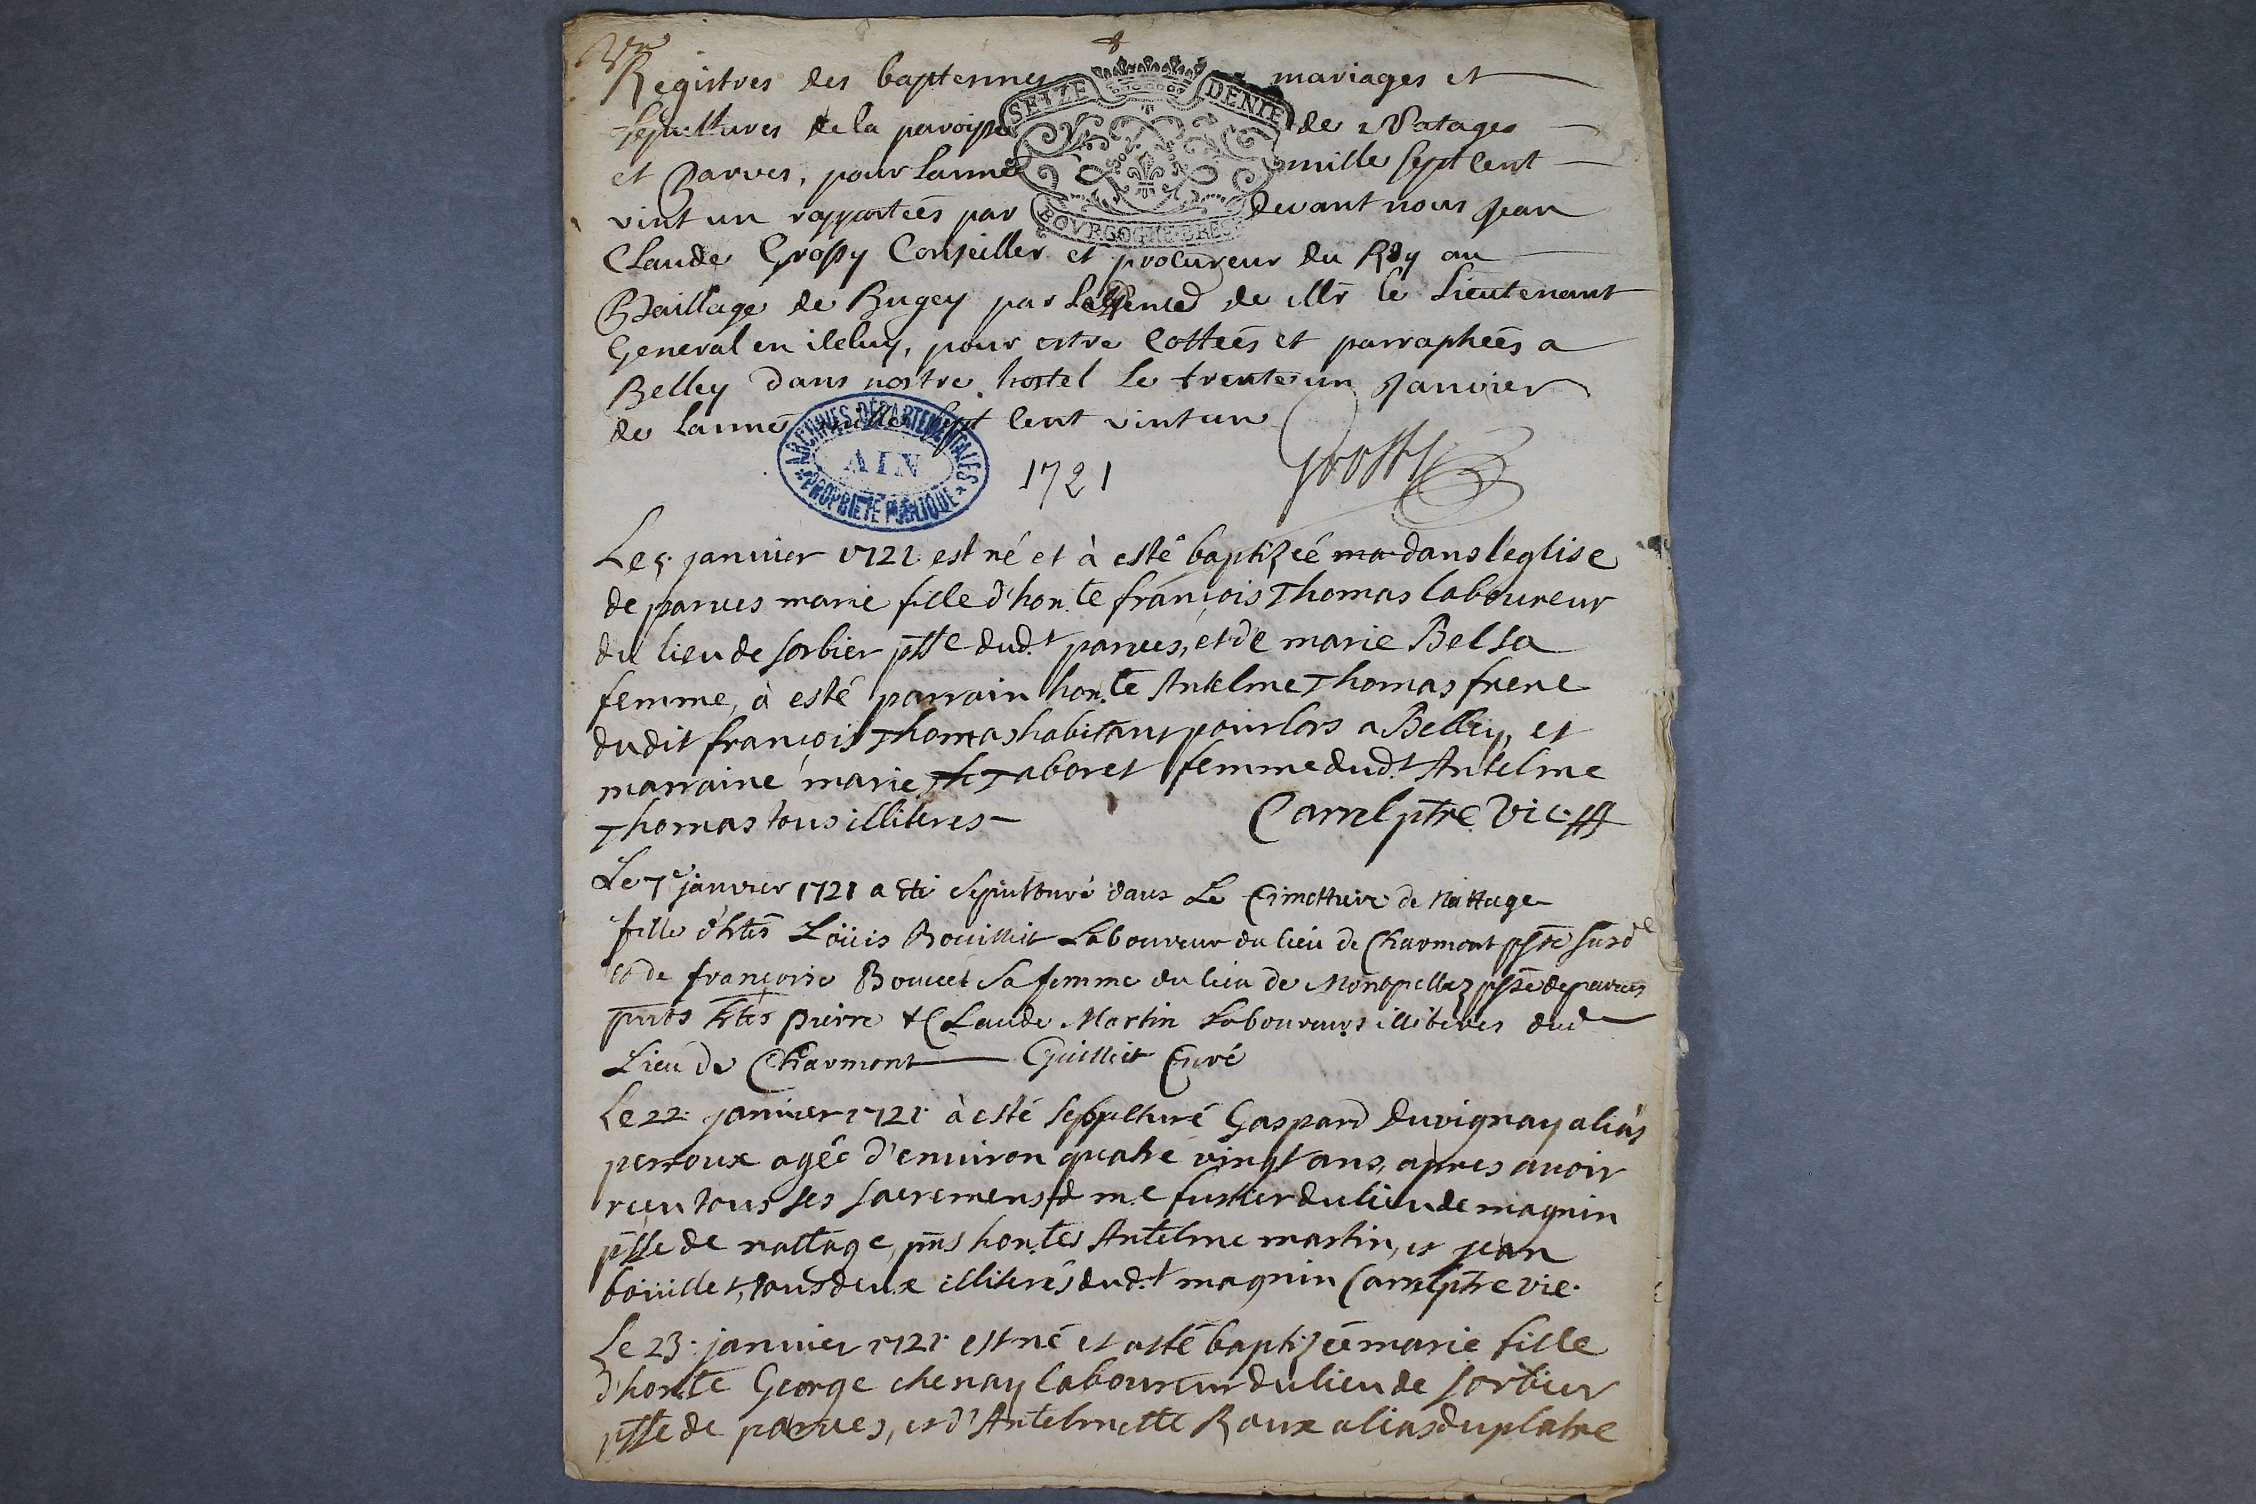 Un
Registres des baptesmes mariages et
sepultures de la paroisse de Natages
et Parves, pour lanné mille sept cent
vint un rapporteés par devant nous Jean
Claude Grossy Conseiller et procureur du Roy au
Baillage de Bugey par labsence de Mr le Lieutenant
General en iceluy, pour estre cotteés et parrapheés a
Belley dans nostre hostel le trente un Janvier
de lanné mille sept cent vint un
SEIZE DENIE
BOVRGOGNE BRES
ARCHIVES DÉPARTEMENTALES
AIN
PROPRIÉTÉ PUBLIQUE
1721
Grossy
Le 5. janvier 1721. est né et à esté baptizeé ma dans l'eglise
de parves marie fille d'hon.te françois Thomas laboureur
du lieu de sorbier psse dud.t parves, et de marie Bel sa
femme, à esté parrain hon.te Antelme Thomas frere
dudit françois Thomas habitant pour lors a Belley, et
marraine marie Th Taboret femme dud.t Antelme
Thomas tous illiteres
Carrel ptre vic.
Le 7e janvier 1721 a été sepulturé dans Le Cimettiere de Nattage
fille d'htes Loüis Bouillet Laboureur du lieu de Charmont psse susd
et de françoise Boucet sa femme du lieu de Montpellaz psse de parves
pnts htes pierre & Claude Martin Laboureurs illiteres dud
Lieu de Charmont Guillet Curé
Le 22. janvier 1721. à esté sepulturé Gaspard Duvignay aliàs
perroux ageé d'environ quatre vingt ans, apres avoir
receu tous ses sacremens, d m.e fustier du lieu de magnin
psse de nattage, pnts hon.tes Antelme martin, et jean
boüillet, tous deux illiterés dud.t magnin Carrel ptre vic.
Le 23. janvier 1721. est né et a esté baptizeé marie fille
d'hon.te George chenay laboureur du lieu de sorbier
psse de parves, et d'Antelmette Roux alias duplatre